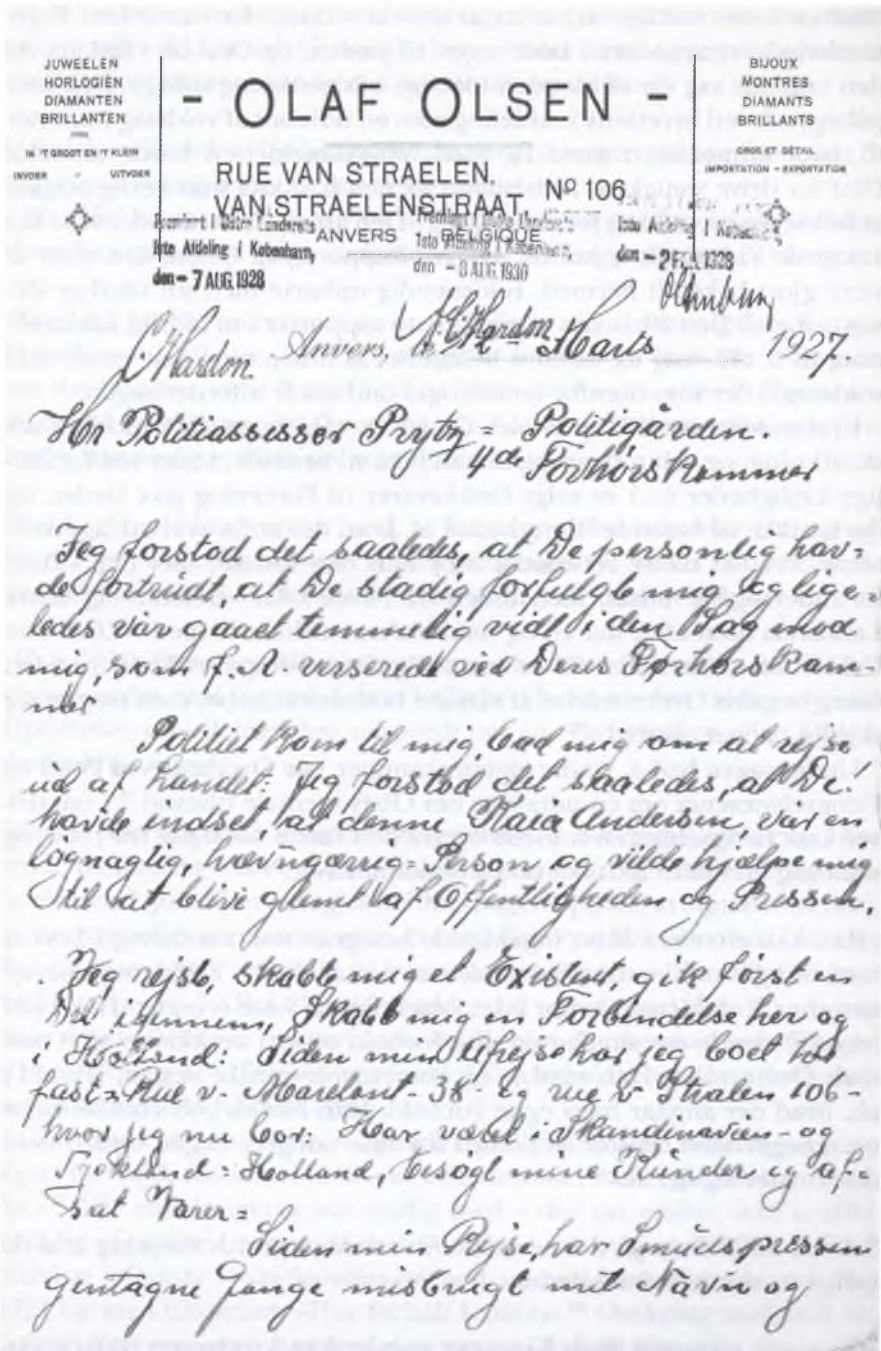 JUWEELEN
HORLOGIËN
DIAMANTEN
BRILLANTEN
IN 'T GROOT EN 'T KLEIN
INVOER - UITVOER
- OLAF OLSEN -
RUE VAN STRAELEN,
VAN STRAELENSTRAAT, No 106
ANVERS BELGIQUE
BIJOUX
MONTRES
DIAMANTS
BRILLANTS
GROS ET DÉTAIL
IMPORTATION - EXPORTATION
Fremlagt i Østre Landsrets
1ste Afdeling i København,
den - 7 AUG. 1928
Fremlagt i Østre Landsrets
1ste Afdeling i København,
den - 8 AUG. 1930
1ste Afdeling i København
den - 2 1928
Hardon
Hardon
Anvers, Marts 1927
Hr Politiassessor Prytz = Politigården.
4de Forhørskammer
Jeg forstod det saaledes, at De personlig hav=
de fortrudt, at De stadig forfulgte mig og lige
ledes var gaaet temmelig vidt i den Sag mod
mig, som f. A. verserede ved Deres Førhørskam-
mer
Politiet kom til mig bad mig om at rejse
ud af Landet: Jeg forstod det slaaledes, at De
havde indset at denne Kaia Andersen, var en
løgnagtig, hævngærrig = Person og vilde hjælpe mig
til at blive glemt af Offentligheden og Pressen.
Jeg rejste, skabte mig et Existent, gik først en
Tid i hennem, Skabte mig en Forbindelse her og
i Holland: Siden min Udrejse har jeg boet her
fast = Rue v. 38 og rue v. Stralen 106 -
hvor jeg nu bor: Har været i Skandinavien og
Tjekland: Holland, besøgt mine Kunder og af-
sat Varer -
Siden min Rejse, har Smudspressen
gentagne Gange misbrugt mit Navn og